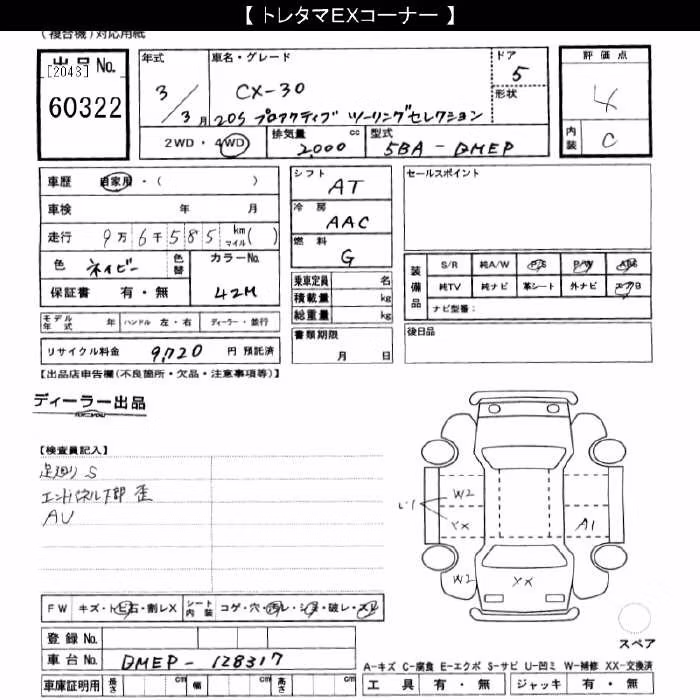 【 トレタマEXコーナー 】
(複合機)対応用紙
出品 No.
[2043]
60322
年式
3/3月
車名・グレード
CX-30
20S プロアクティブ ツーリングセレクション
ドア
5
形状
評価点
4
内装
C
2WD・4WD
排気量
2,000 cc
型式
5BA-DMEP
車歴 自家用・( )
車検 年 月
走行 9万6千585 km マイル( )
色 ネイビー 色替
カラーNo. 42M
保証書 有・無
シフト AT
冷房 AAC
燃料 G
乗車定員 名
積載量 kg
総重量 kg
セールスポイント
装備品
S/R 純A/W P/S P/W ABS
純TV 純ナビ 革シート 外ナビ エアB
ナビ型番：
モデル年式 年 ハンドル 左・右 ディーラー・並行
書類期限
月 日
後日品
リサイクル料金 9,720 円 預託済
【出品店申告欄(不良箇所・欠品・注意事項等)】
ディーラー出品
【検査員記入】
足廻り S
エンドパネル下部 歪
AU
W2
YX
A1
W2
YX
FW キズ・トビ石・割レX シート内装 コゲ・穴・汚レ・シミ・破レ・スレ
登録 No.
車台 No. DMEP-128317
車庫証明用 長さ cm 幅 cm 高さ cm
スペア
A-キズ C-腐食 E-エクボ S-サビ U-凹ミ W-補修 XX-交換済
工具 有・無 ジャッキ 有・無